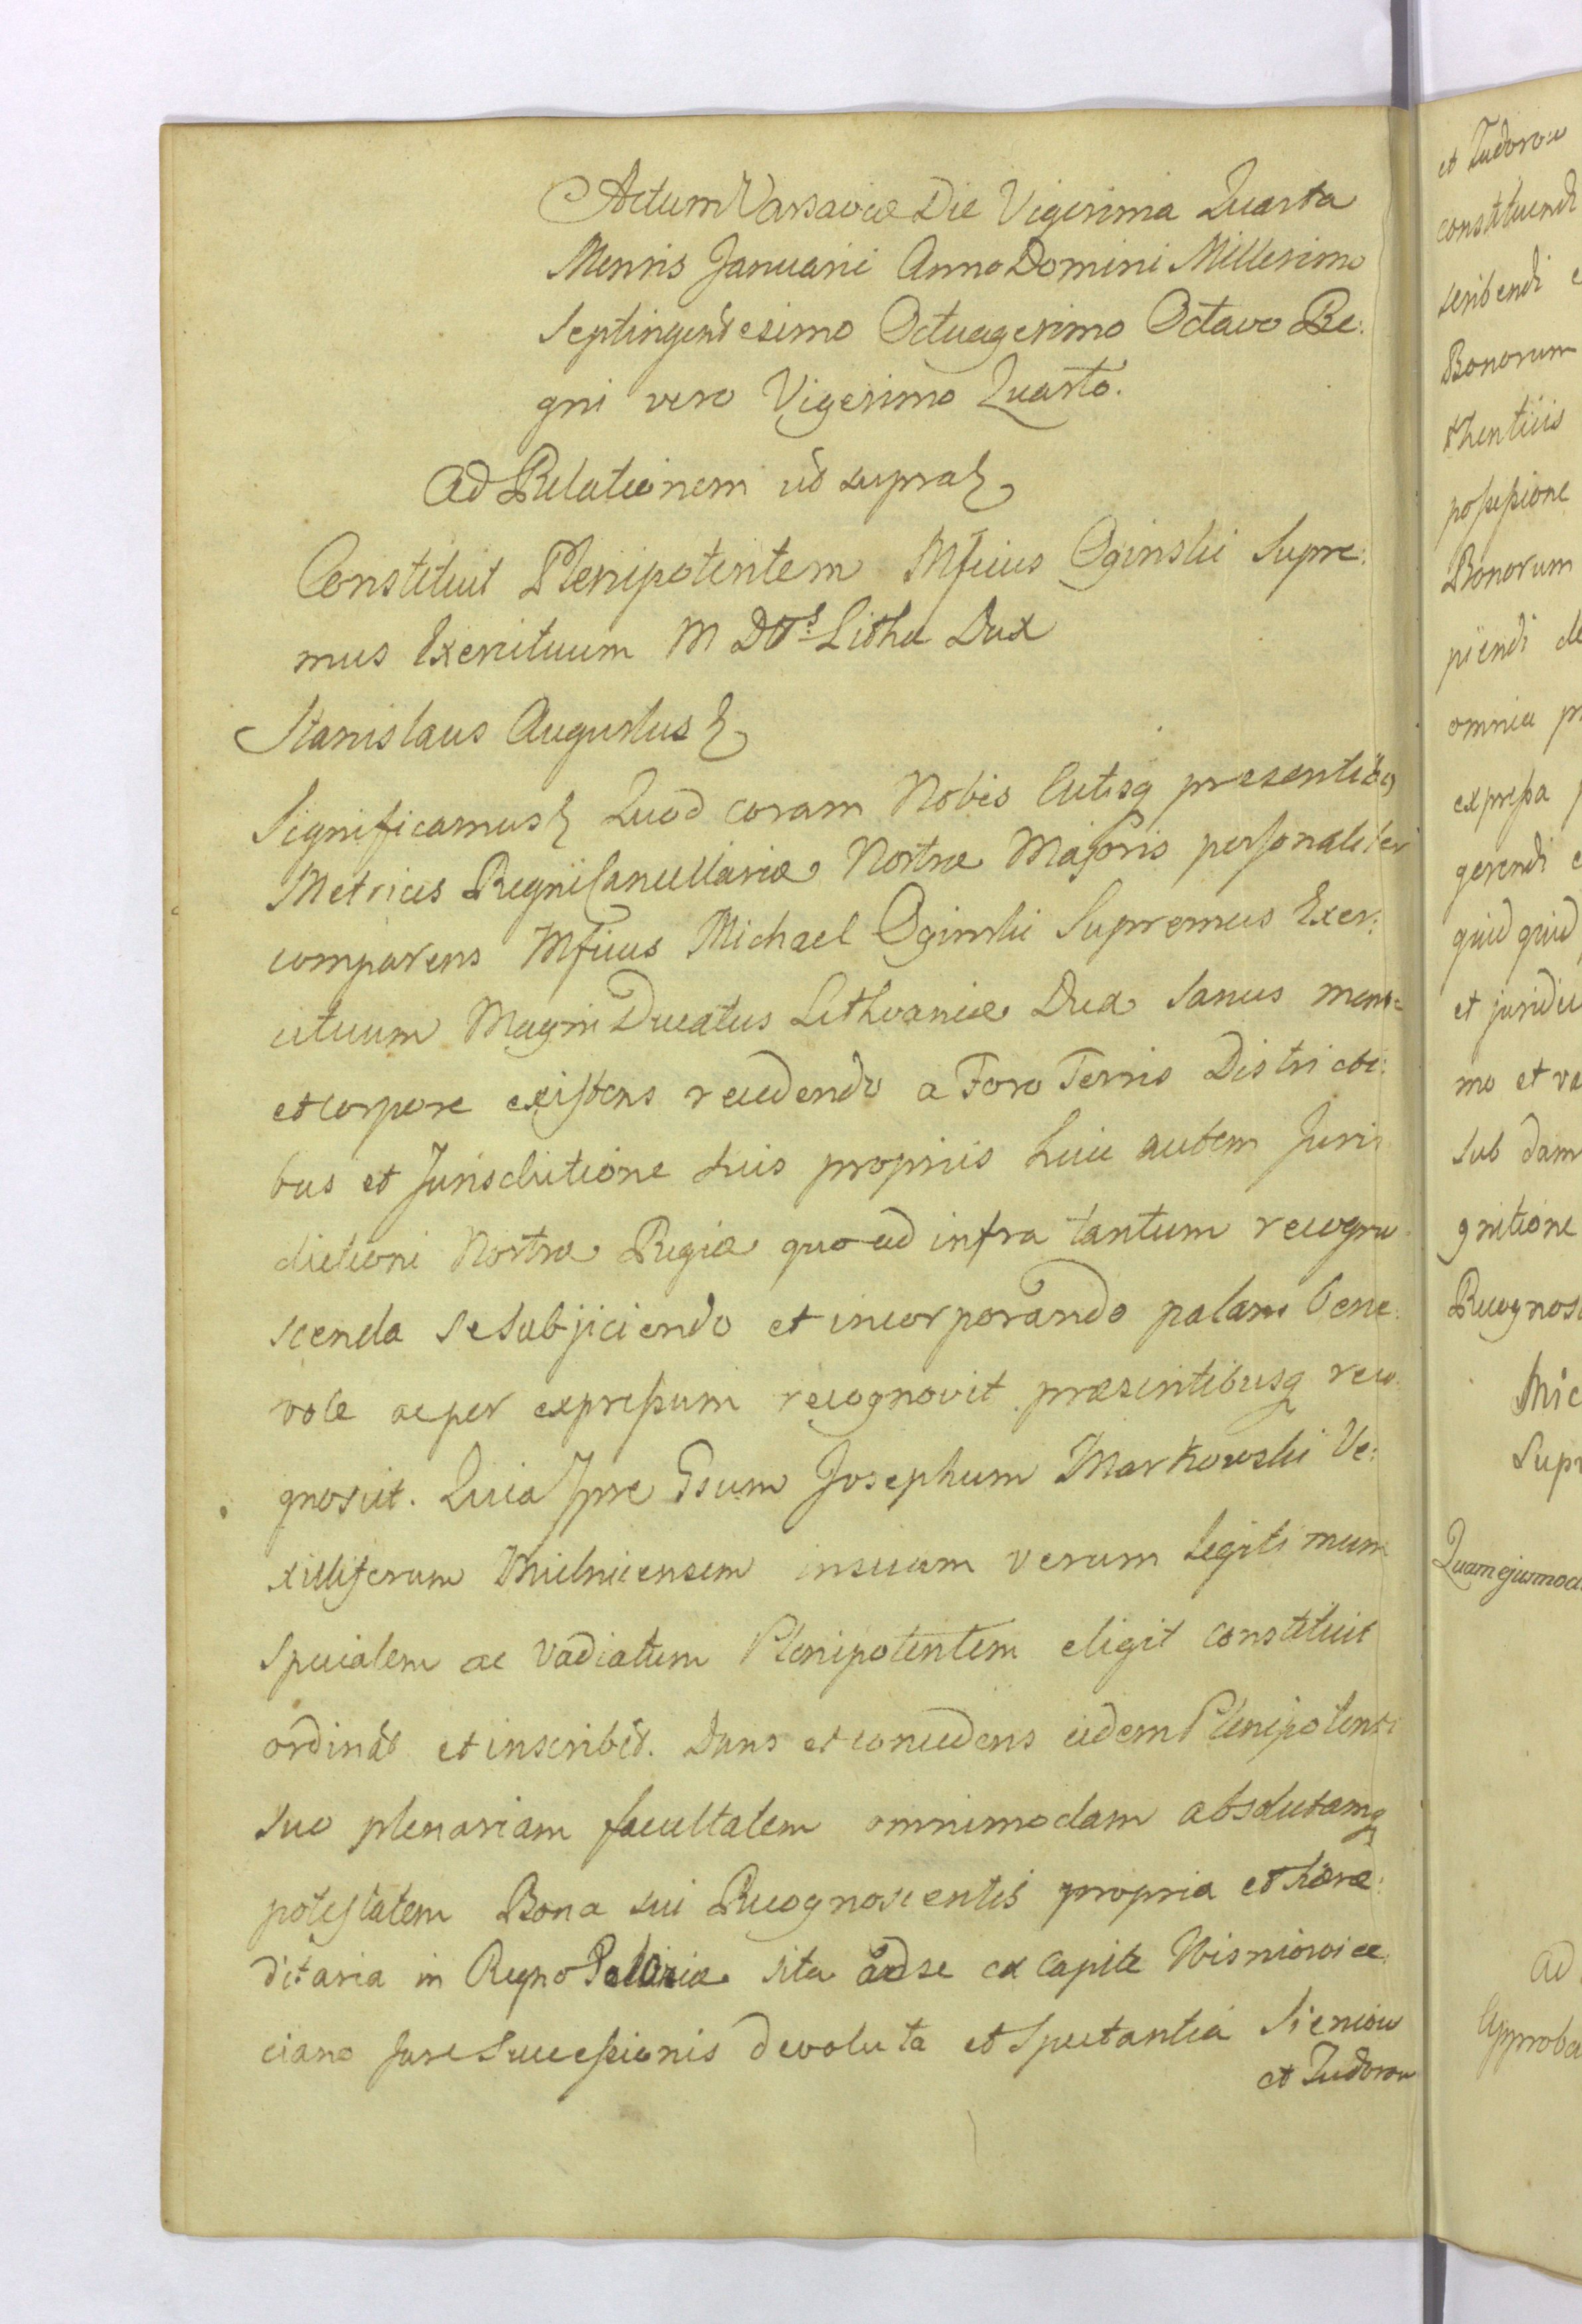 Actum Varsaviæ Die Vigesima Quarta
Mensis Januarii Anno Domini Millesimo
Septingentesimo Octuagesimo Octavo Re:
gni vero Vigesimo Quarto.
Ad Relationem ut supra
Constituit Plenipotentem Mficus Oginski Supre:
mus Exercituum M D Lithu Dux
Stanislaus Augustus
Significamus Quod coram Nobis Actisq presentibus
Metrices Regni Cancellariæ Nostræ Majoris personaliter
comparens Mficus Michael Oginski Supremus Exer:
cituum Magni Ducatus Lithvaniæ Dux Sanus mente
et corpore existens recedendo a Foro Terris Districti:
bus et Jurisdictione suis propriis huic autem Juris
dictioni Nostræ Regiæ quo ad infra tantum recogno
scenda se subjiciendo et incorporando palam bene:
vole ac per expressum recognovit præsentibusq reco
gnoscit. Quia Ipse Gsum Josephum Markowski Ve:
xilliferum Mielnicensem in suum verum legitimum
specialem ac Vadiatum Plenipotentem eligit constituit
ordinat et inscribit. Dans et concedens eidem Plenipotenti
suo plenariam facultatem omnimodam absolutamq
potestatem Bona sui Recognoscentis propria et hære:
ditaria in Regno Poloniæ sita ad se ex capite Wisniowie
ciano Jure Successionis devoluta et Spectantia Sieniow
et Tudorow
et Tudorow
constituendi
scribendi
Bonorum
thenticis
possessione
Bonorum
piendi de
omnia
expressa
gerendi
quid quid
et juridi
mo et ve
sub dam
gnitione
Recognosc
Mic
Supr
Quam ejusmod
Ad
Approba